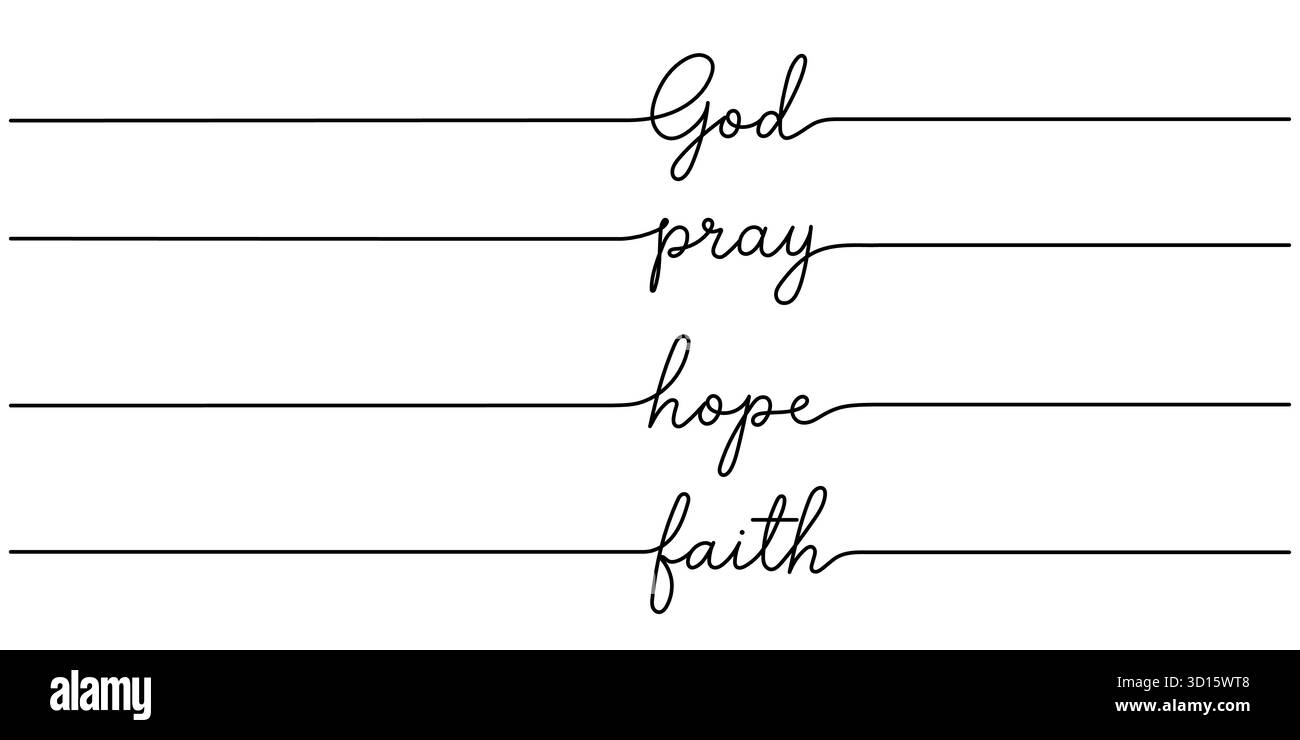 God
pray
hope
faith
alamy
Image ID: 3D15WT8
www.alamy.com